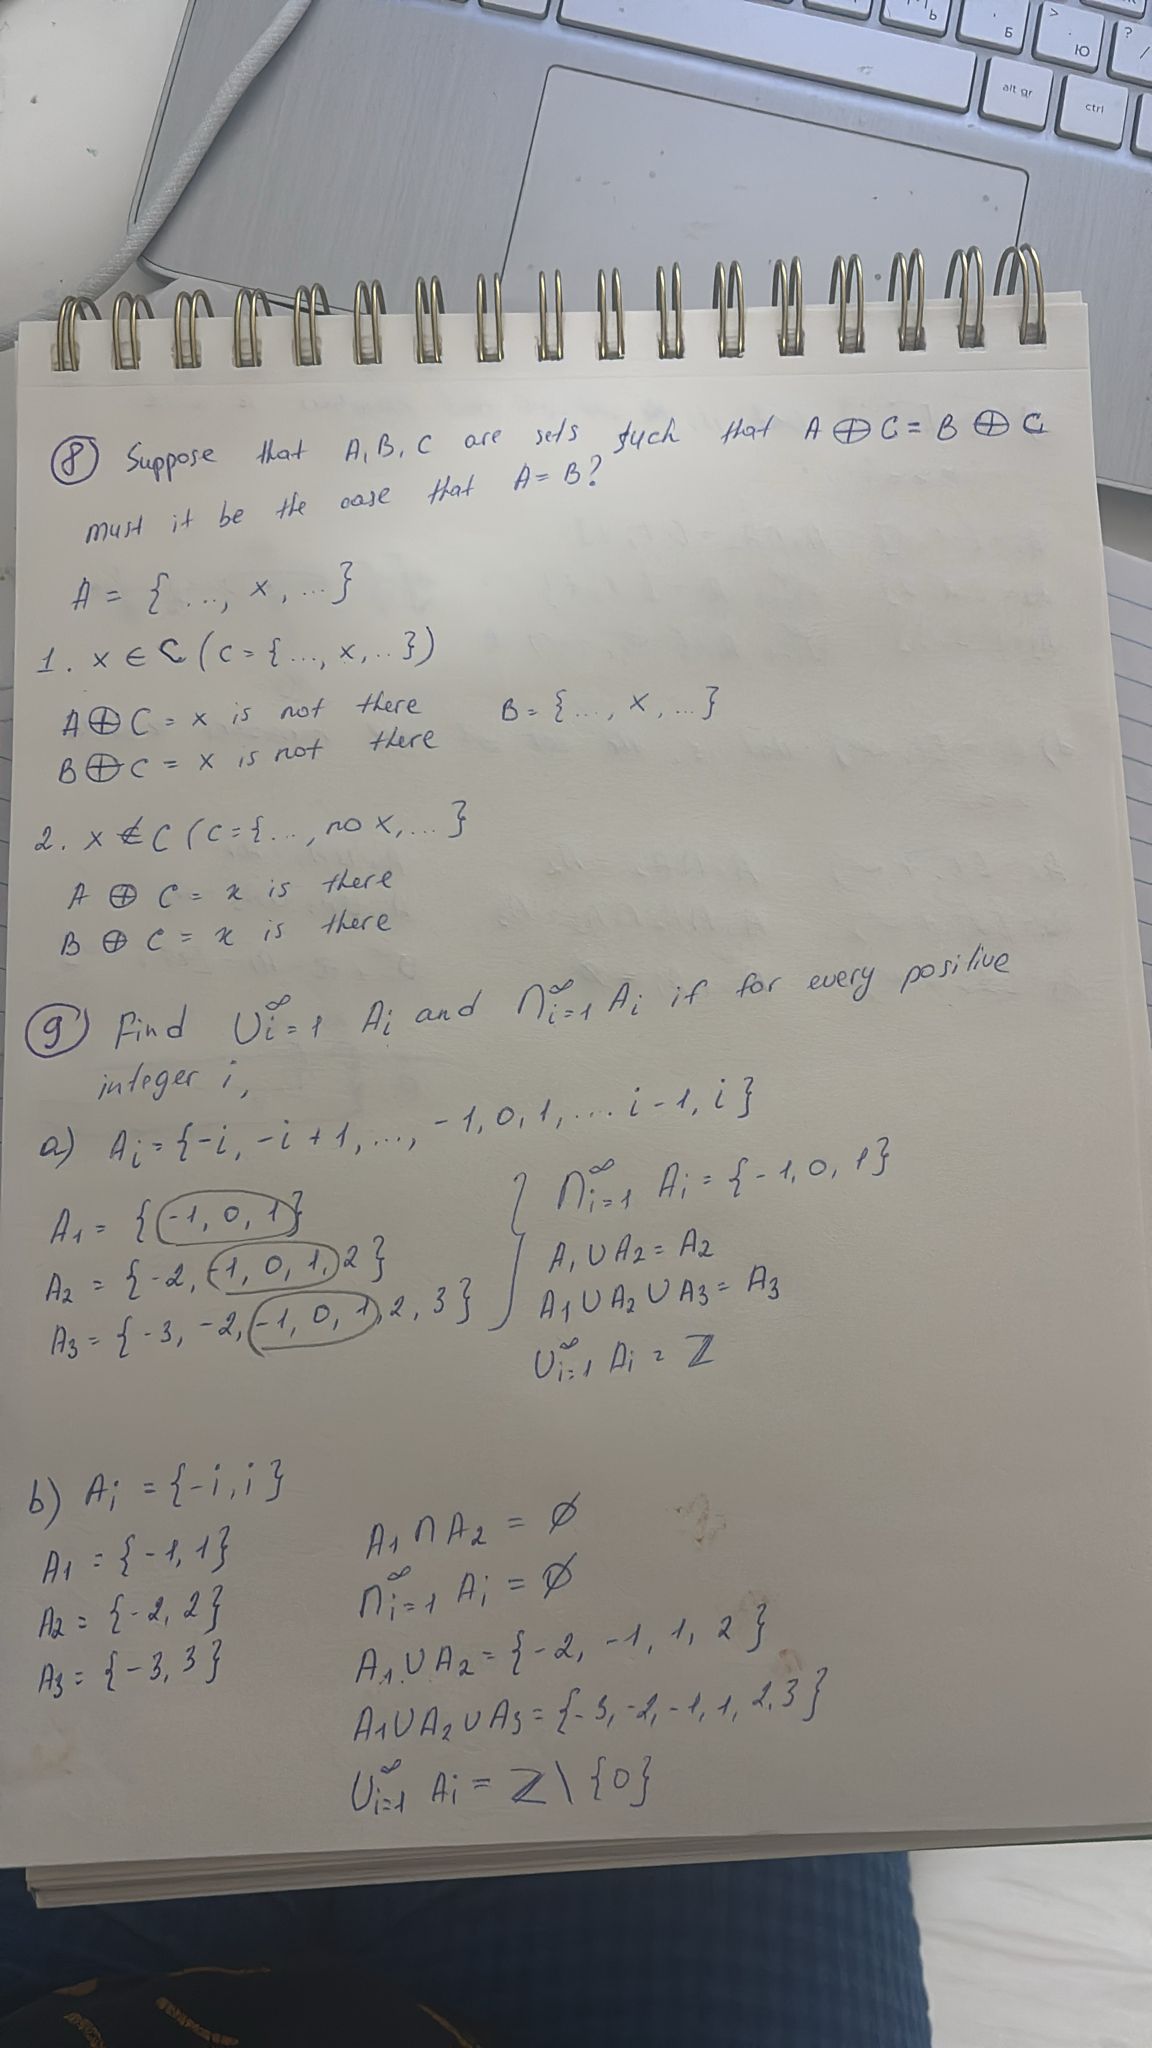 ь
Б
>
.
Ю
?
/
alt gr
ctrl
⑧ Suppose that A, B, C are sets such that A ⊕ C = B ⊕ C
must it be the case that A = B?
A = { ..., x, ... }
1. x ∈ C (C = {..., x, ..})
A ⊕ C = x is not there B = { ..., x, ... }
B ⊕ C = x is not there
2. x ∉ C ( C = {..., no x, ... }
A ⊕ C = x is there
B ⊕ C = x is there
⑨ Find ∪ᵢ₌₁^∞ Aᵢ and ∩ᵢ₌₁^∞ Aᵢ if for every positive
integer i,
a) Aᵢ = {-i, -i + 1, ..., -1, 0, 1, ... i - 1, i }
A₁ = { -1, 0, 1 } ∩ᵢ₌₁^∞ Aᵢ = { -1, 0, 1 }
A₂ = { -2, -1, 0, 1, 2 } A₁ ∪ A₂ = A₂
A₃ = { -3, -2, -1, 0, 1, 2, 3 } A₁ ∪ A₂ ∪ A₃ = A₃
∪ᵢ₌₁^∞ Aᵢ = ℤ
b) Aᵢ = {-i, i }
A₁ = { -1, 1 } A₁ ∩ A₂ = ∅
A₂ = { -2, 2 } ∩ᵢ₌₁^∞ Aᵢ = ∅
A₃ = { -3, 3 } A₁ ∪ A₂ = { -2, -1, 1, 2 }
A₁ ∪ A₂ ∪ A₃ = { -3, -2, -1, 1, 2, 3 }
∪ᵢ₌₁^∞ Aᵢ = ℤ \ {0}